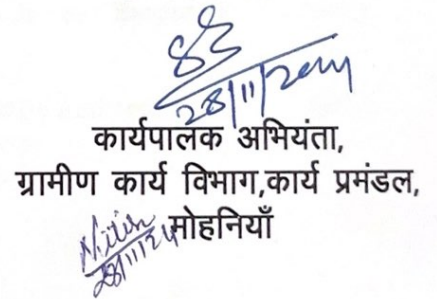 28/11/2024
कार्यपालक अभियंता,
ग्रामीण कार्य विभाग,कार्य प्रमंडल,
मोहनियाँ
Nitin
28/11/24